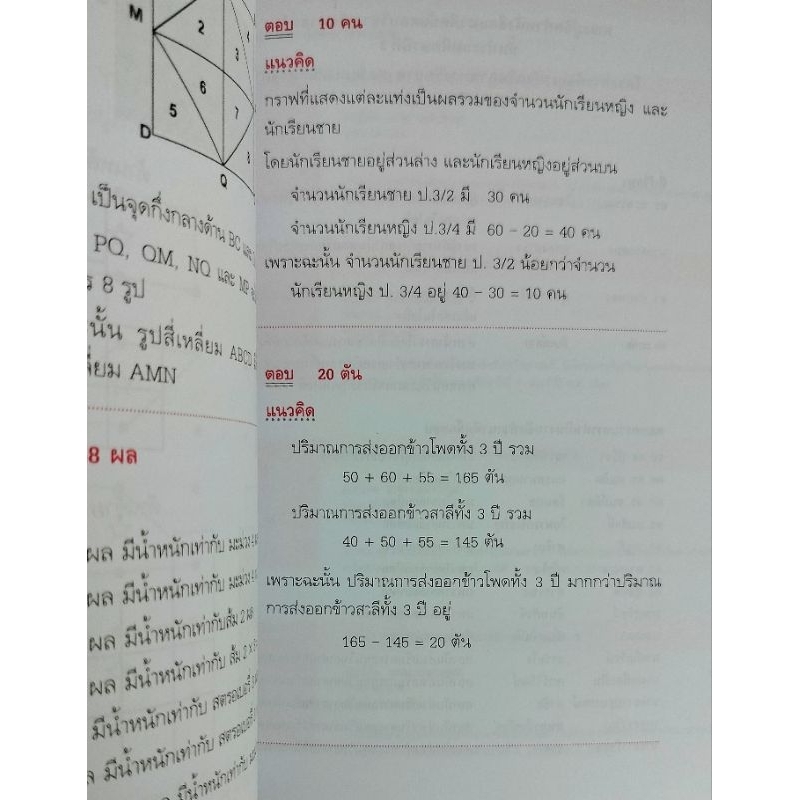 M
2
3
6
5
7
D
8
Q
เป็นจุดกึ่งกลางด้าน BC และ
PQ, QM, NQ และ MP
8 รูป
นั้น รูปสี่เหลี่ยม ABCD
AMN
8 ผล
ผล มีน้ำหนักเท่ากับ มะม่วง
ผล มีน้ำหนักเท่ากับ มะม่วง
ผล มีน้ำหนักเท่ากับส้ม 2 ผล
ผล มีน้ำหนักเท่ากับ ส้ม 2 ×
มีน้ำหนักเท่ากับ สตรอเบอรี่
ผล มีน้ำหนักเท่ากับ สตรอเบอรี่
มีน้ำหนักเท่ากับ
ตอบ 10 คน
แนวคิด
กราฟที่แสดงแต่ละแท่งเป็นผลรวมของจำนวนนักเรียนหญิง และ
นักเรียนชาย
โดยนักเรียนชายอยู่ส่วนล่าง และนักเรียนหญิงอยู่ส่วนบน
จำนวนนักเรียนชาย ป.3/2 มี 30 คน
จำนวนนักเรียนหญิง ป.3/4 มี 60 - 20 = 40 คน
เพราะฉะนั้น จำนวนนักเรียนชาย ป. 3/2 น้อยกว่าจำนวน
นักเรียนหญิง ป. 3/4 อยู่ 40 - 30 = 10 คน
ตอบ 20 ตัน
แนวคิด
ปริมาณการส่งออกข้าวโพดทั้ง 3 ปี รวม
50 + 60 + 55 = 165 ตัน
ปริมาณการส่งออกข้าวสาลีทั้ง 3 ปี รวม
40 + 50 + 55 = 145 ตัน
เพราะฉะนั้น ปริมาณการส่งออกข้าวโพดทั้ง 3 ปี มากกว่าปริมาณ
การส่งออกข้าวสาลีทั้ง 3 ปี อยู่
165 - 145 = 20 ตัน